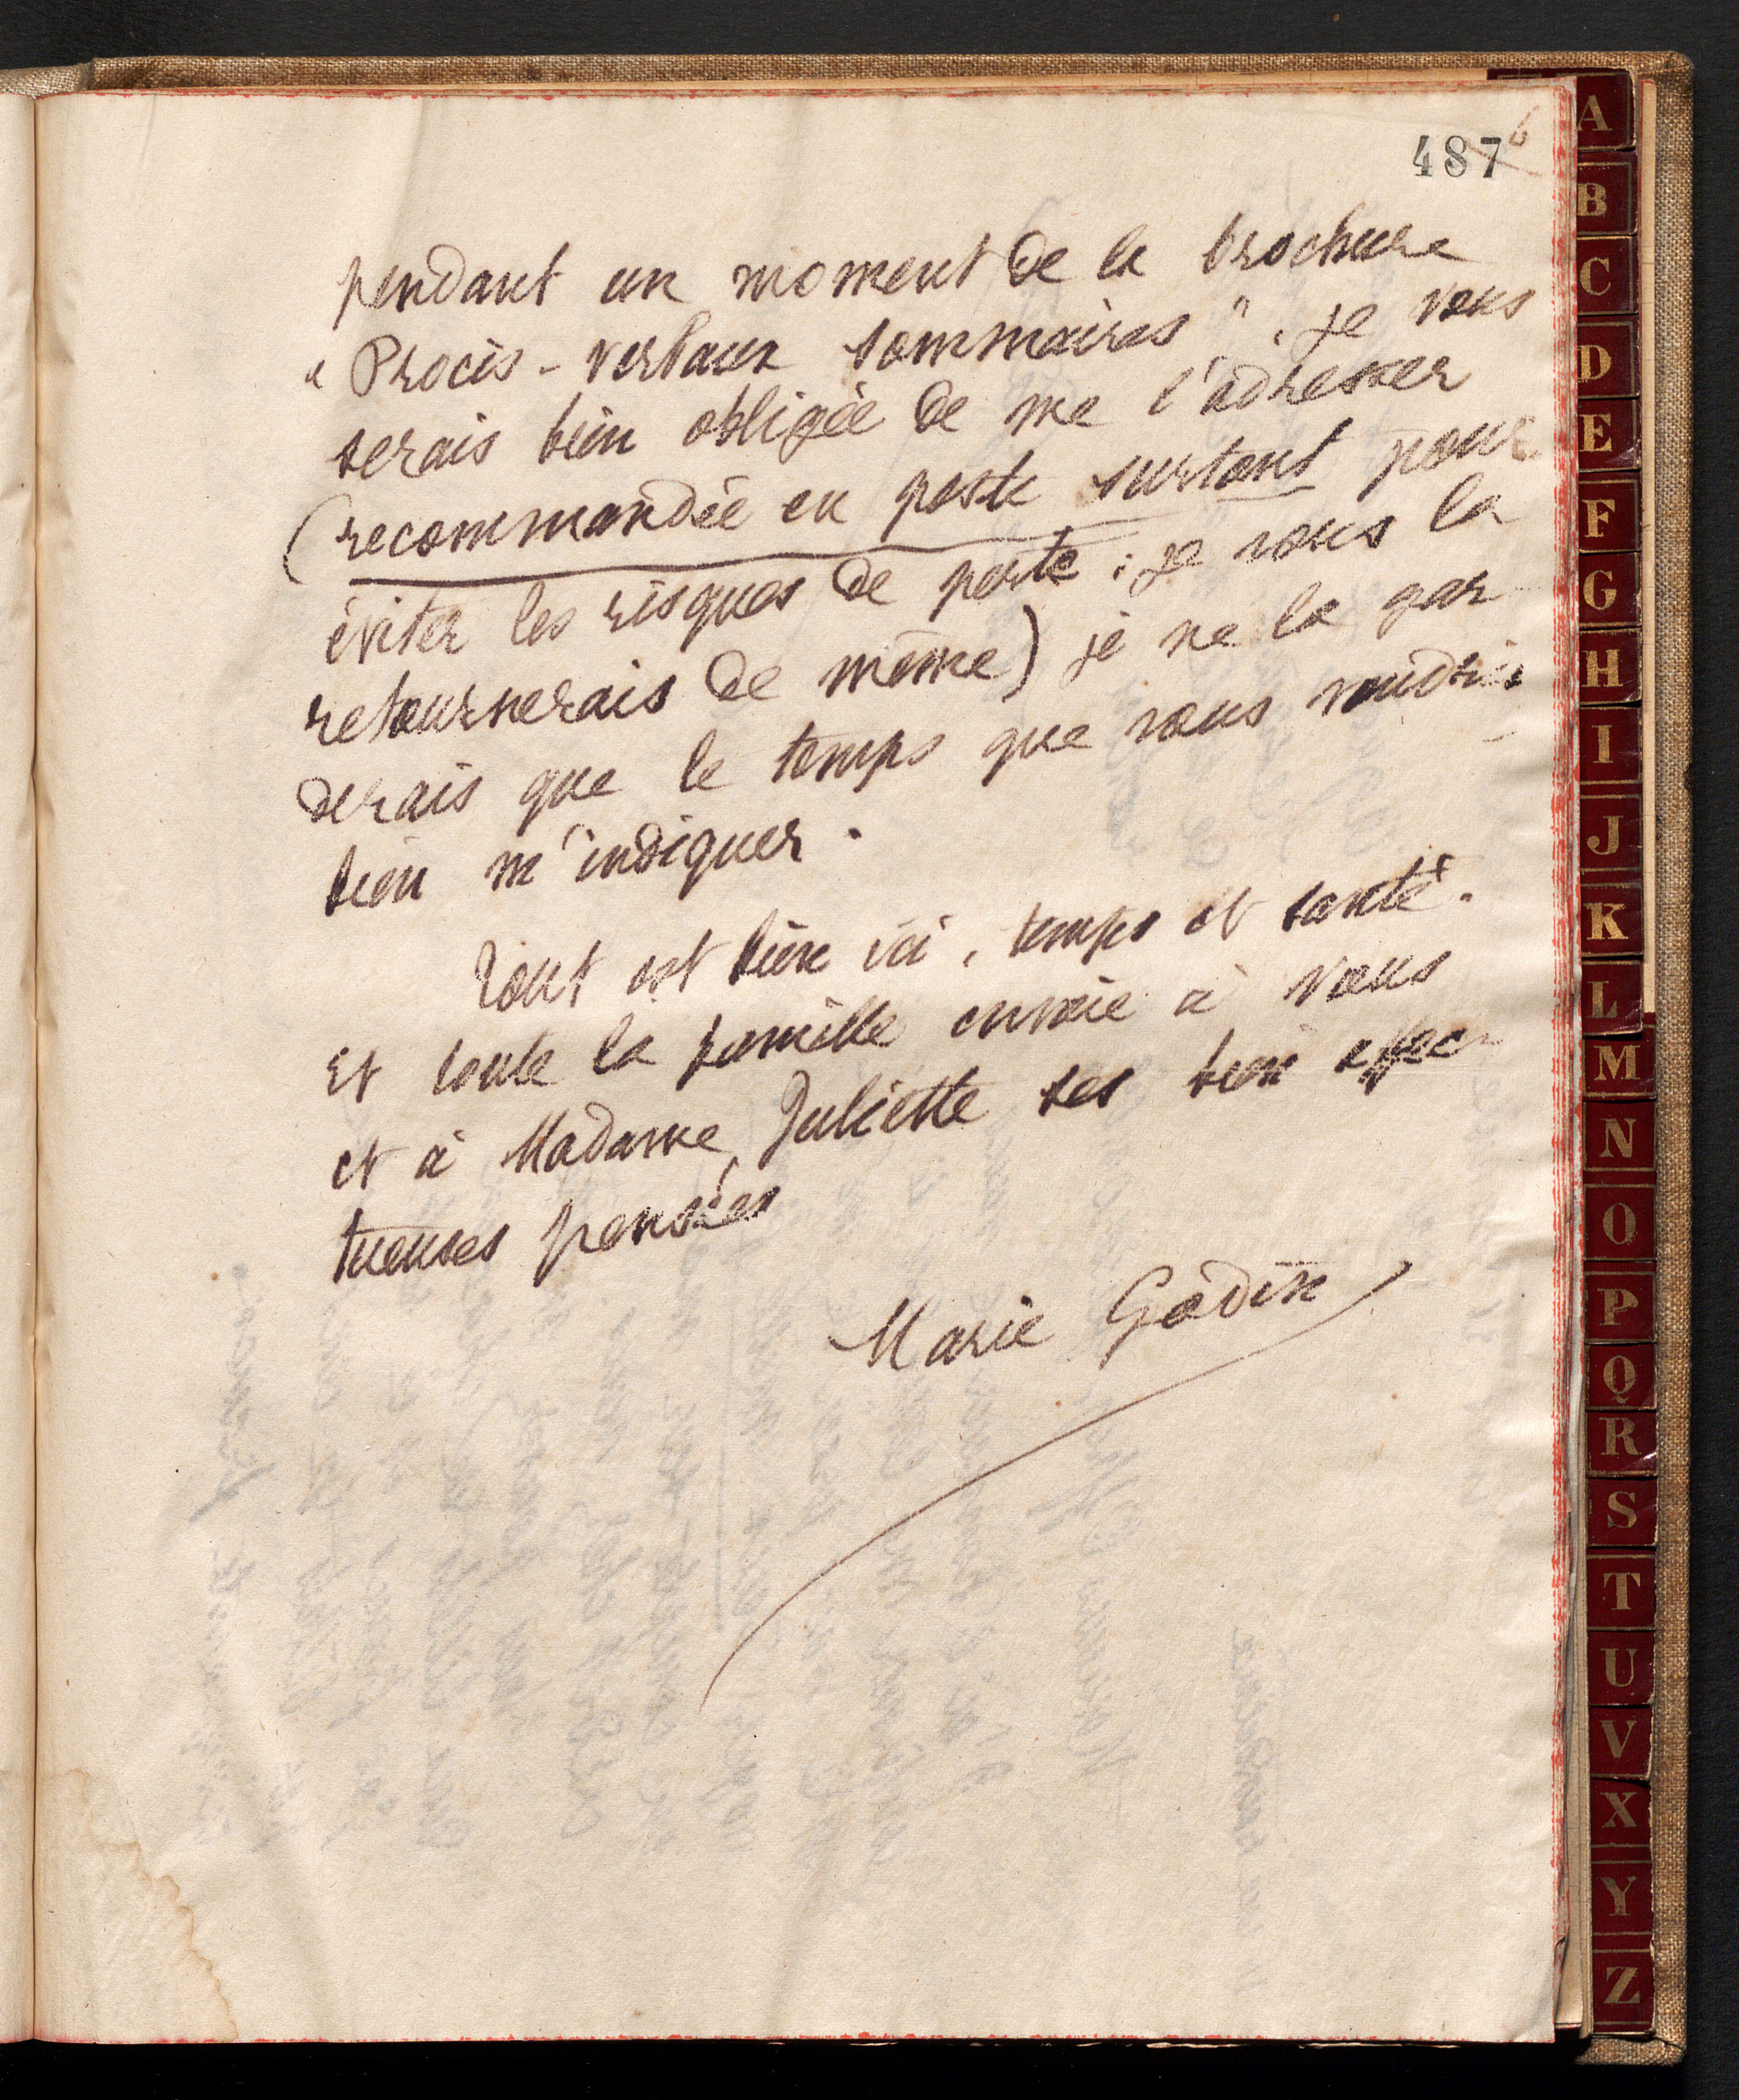 487 6
pendant un moment de la brochure
"Procès-verbaux sommaires", je vous
serais bien obligée de me l'adresser
(recommandée en poste surtout pour
éviter les risques de perte ; je vous la
retournerais de même) je ne la gar
derais que le temps que vous voudriez
bien m'indiquer.
Tout est bien ici, temps et santé.
Et toute la famille envoie à vous
et à Madame Juliette ses bien affec
tueuses pensées
Marie Godin
A
B
C
D
E
F
G
H
I
J
K
L
M
N
O
P
Q
R
S
T
U
V
X
Y
Z